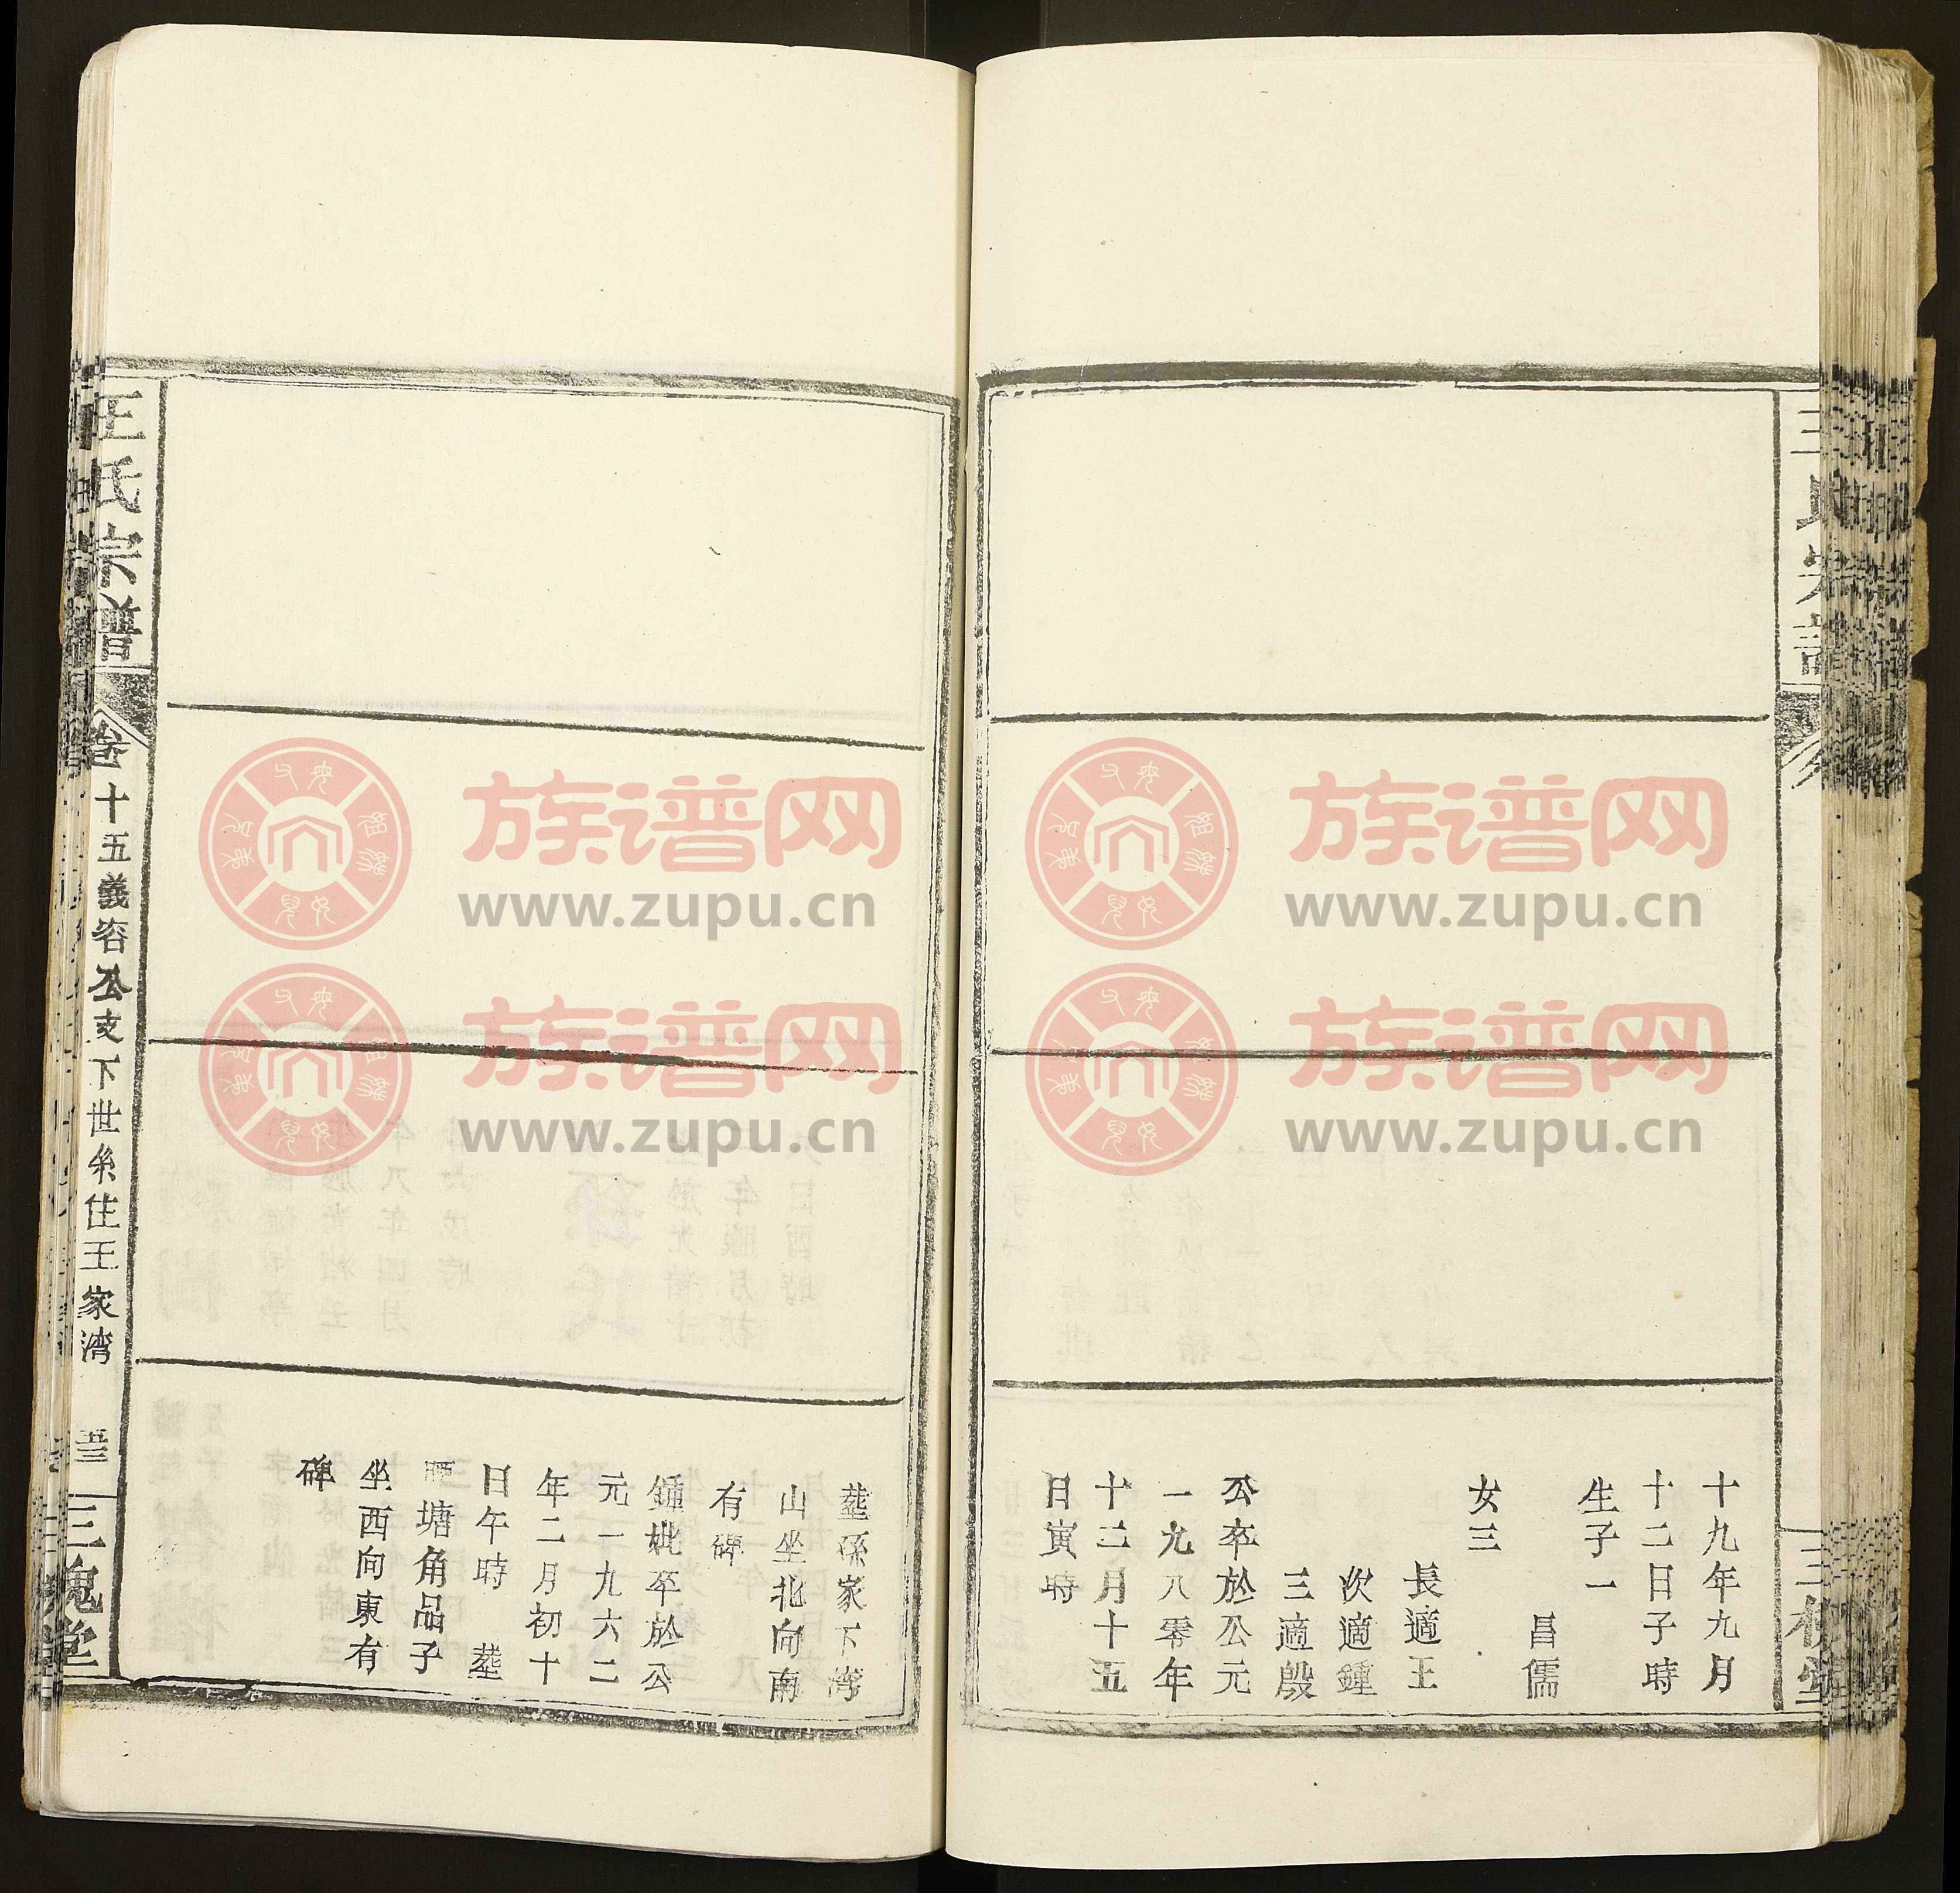 王氏宗譜
十九年九月
十二日子時
生子一
昌儒
女三
長適王
次適鍾
三適殷
公卒於公元
一九八零年
十二月十五
日寅時
三槐堂
塟孫家下湾
山坐北向南
有碑
鍾妣卒於公
元一九六二
年二月初十
日午時 塟
塘角品子
坐西向東有
碑
王氏宗譜
卷十五義容公支下世系住王家湾
三槐堂
族谱网
www.zupu.cn
族谱网
www.zupu.cn
族谱网
www.zupu.cn
族谱网
www.zupu.cn